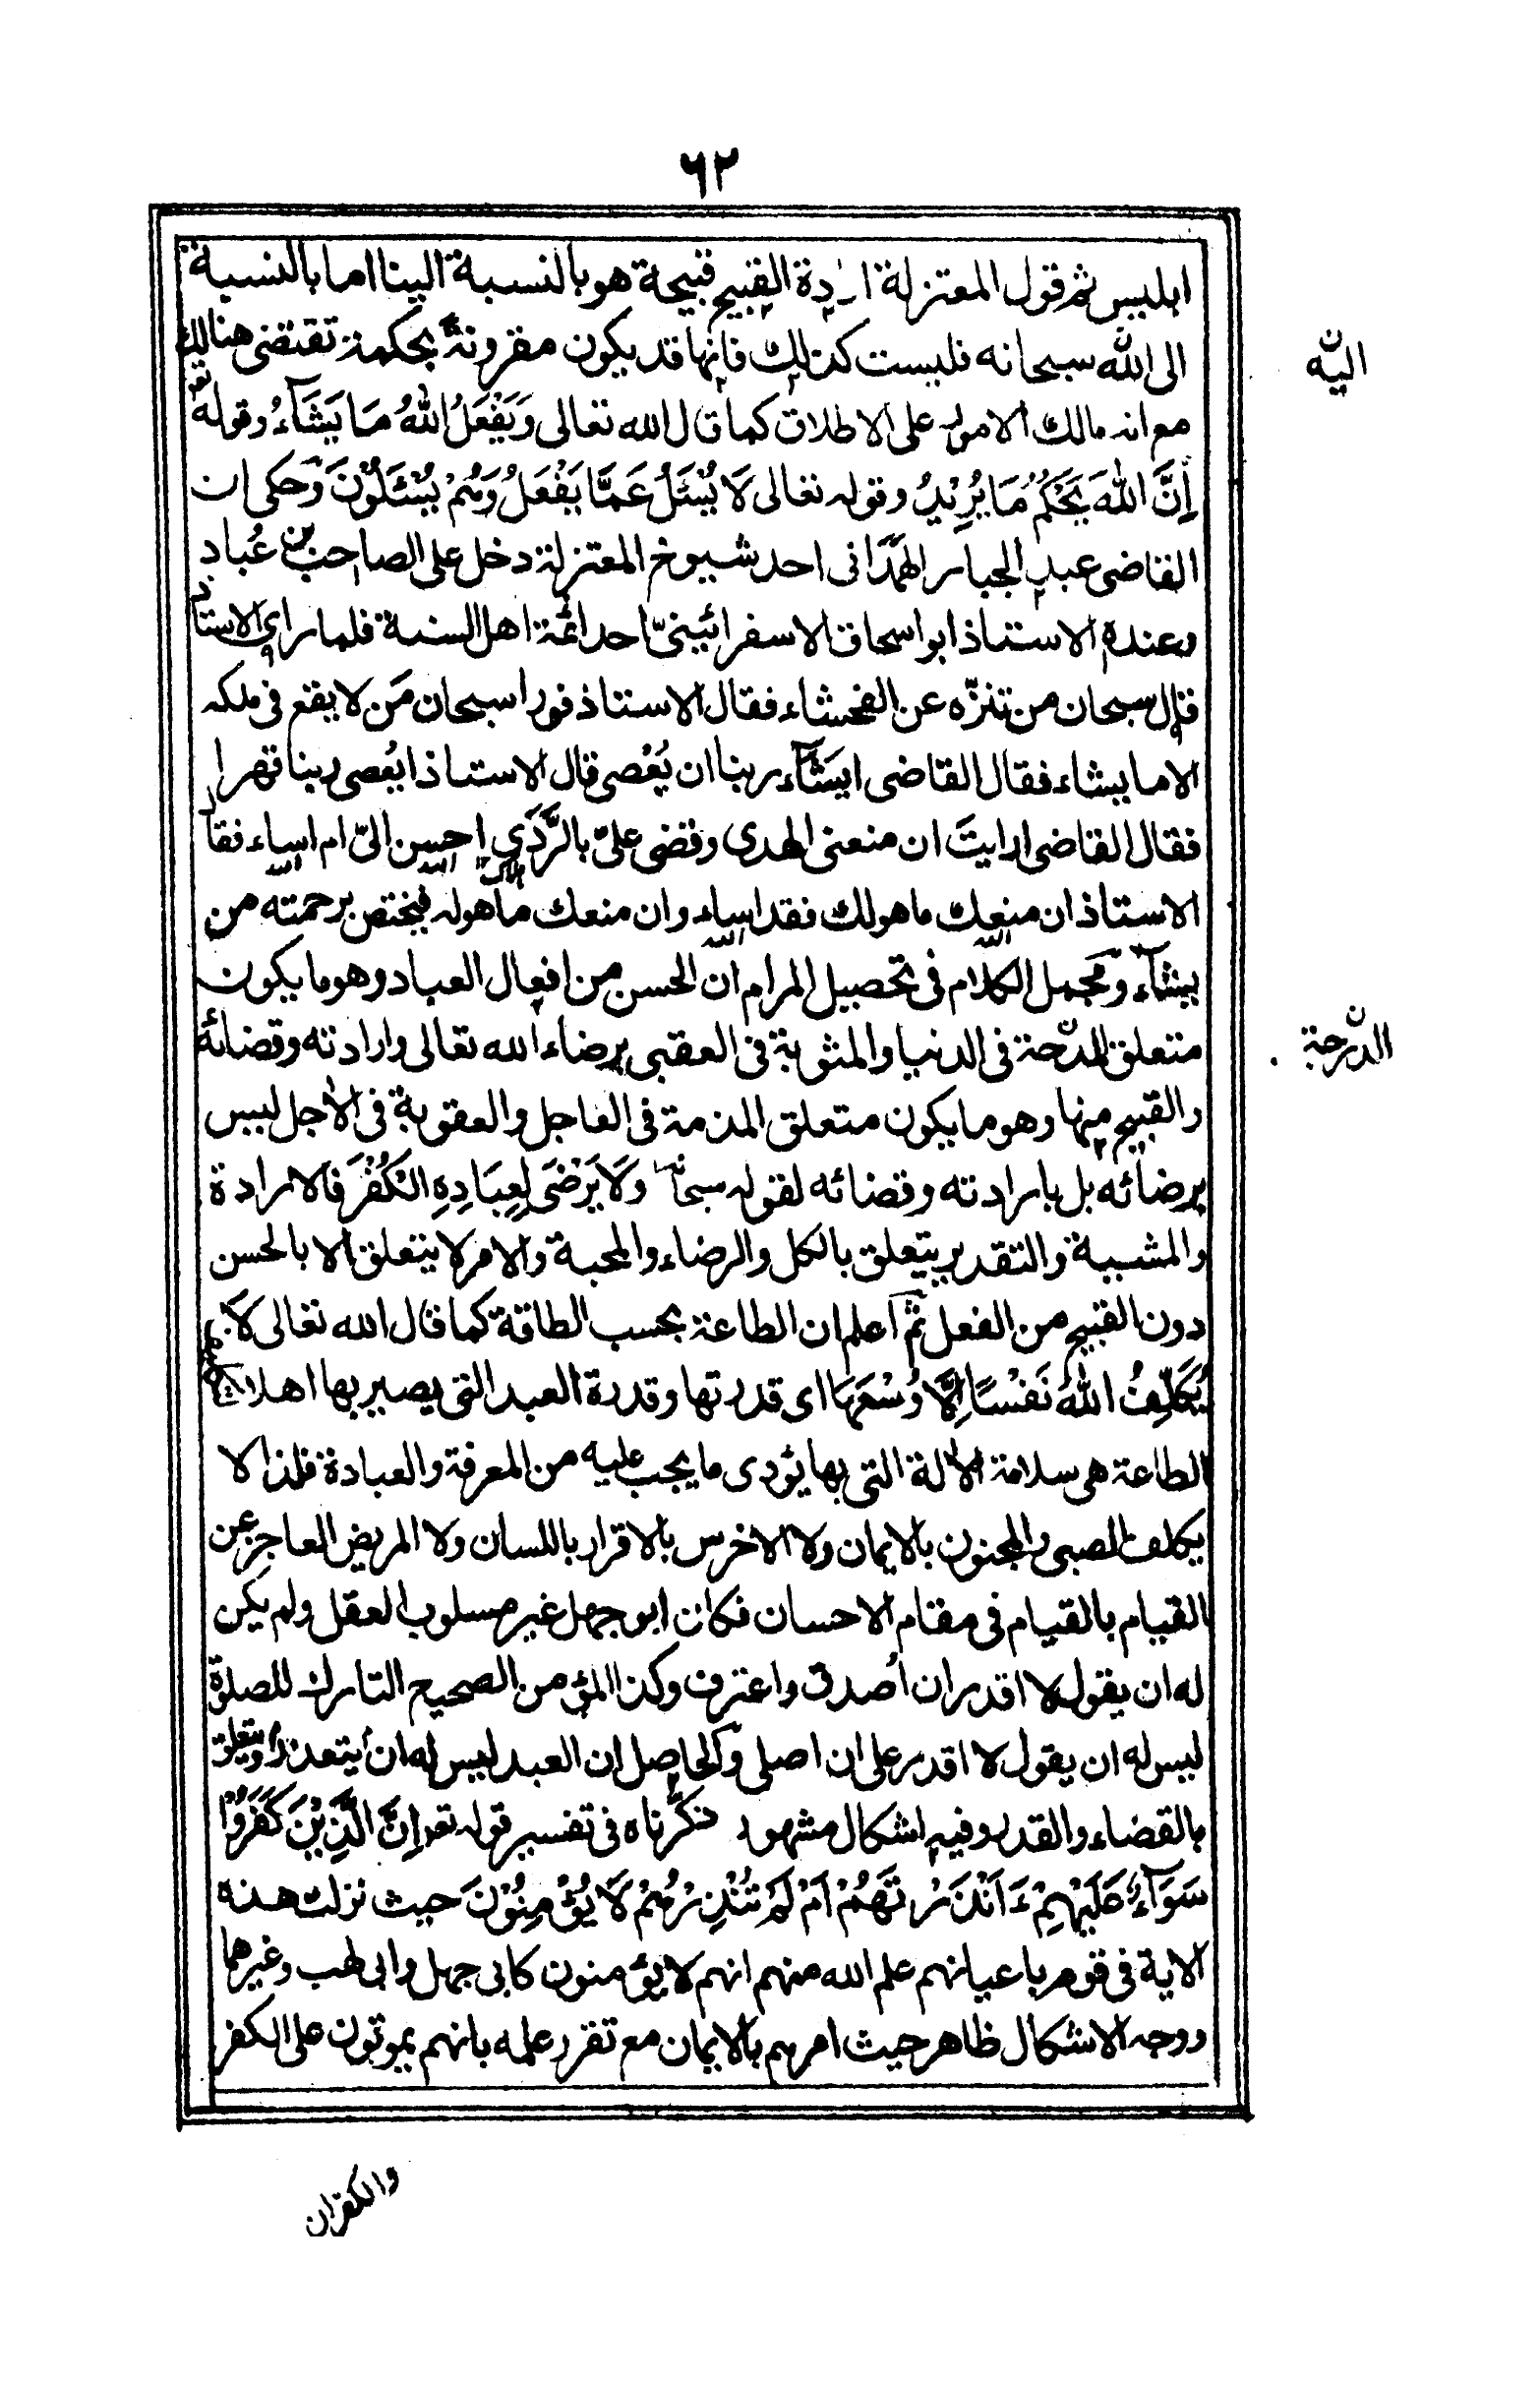 ٦٢
ابليس ثم قول المعتزلة ارادة القبيح قبيحة هو بالنسبة الينا اما بالنسبة
الى الله سبحانه فليست كذلك فانها قد يكون مقرونة بحكمة تقتضى هنالك
اليه
مع انه مالك الامور على الاطلاق كما قال الله تعالى وَيَفْعَلُ اللهُ مَا يَشَآءُ وقوله تع
اِنَّ اللهَ يَحْكُمُ مَا يُرِيْدُ وقوله تعالى لَا يُسْئَلُ عَمَّا يَفْعَلُ وَهُمْ يُسْئَلُوْنَ وحكى ان
القاضى عبد الجبار الهمدانى احد شيوخ المعتزلة دخل على الصاحب بن عُباد
وعنده الاستاذ ابو اسحاق الاسفرائينىّ احد ائمة اهل السنة فلما راى الاستاذ
قال سبحان من تنزّه عن الفحشاء فقال الاستاذ فورا سبحان مَن لا يقع فى ملكه
الا ما يشاء فقال القاضى ايشآء ربنا ان يُعْصى قال الاستاذ ايُعصى ربنا قهرا
فقال القاضى ارايتَ ان منعنى الهدى وقضى علىّ بالرَّدَى احسن الىّ ام اساء فقال
الاستاذ ان منعك ما هو لك فقد اساء وان منعك ما هو له فيختص برحمته من
يشآء ومجمل الكلام فى تحصيل المرام ان الحسن من افعال العباد وهو ما يكون
متعلق المدحة فى الدنيا والمثوبة فى العقبى برضاء الله تعالى وارادته وقضائه
الدرجة
والقبيح منها وهو ما يكون متعلق المذمة فى العاجل والعقوبة فى الآجل ليس
برضائه بل بارادته وقضائه لقوله سبحانه وَلَا يَرْضَى لِعِبَادِهِ الْكُفْرَ فالارادة
والمشيية والتقدير يتعلق بالكل والرضاء والمحبة والامر لا يتعلق الا بالحسن
دون القبيح من الفعل ثم اعلم ان الطاعة بحسب الطاقة كما قال الله تعالى لَا
يُكَلِّفُ اللهُ نَفْسًا اِلَّا وُسْعَهَا اى قدرتها وقدرة العبد التى يصير بها اهلا
الطاعة هى سلامة الآلة التى بها يؤدى ما يجب عليه من المعرفة والعبادة فلذا لا
يكلف الصبى والمجنون بالايمان ولا الاخرس بالاقرار باللسان ولا المريض العاجز عن
القيام بالقيام فى مقام الاحسان فكان ابو جهل غير مسلوب العقل ولم يكن
له ان يقول لا اقدر ان اُصدق واعترف وكذا المؤمن الصحيح التارك للصلوة
ليس له ان يقول لا اقدر على ان اصلى والحاصل ان العبد ليس له ان يتعذر ويتعلق
بالقضاء والقدر وفيه اشكال مشهور ذكرناه فى تفسير قوله تع اِنَّ الَّذِيْنَ كَفَرُوْا
سَوَآءٌ عَلَيْهِمْ ءَاَنْذَرْتَهُمْ اَمْ لَمْ تُنْذِرْهُمْ لَا يُؤْمِنُوْنَ حيث نزلت هذه
الاية فى قوم باعيانهم علم الله منهم انهم لا يؤمنون كابى جهل وابى لهب وغيرهما
ووجه الاشكال ظاهر حيث امرهم بالايمان مع تقرر علمه بانهم يموتون على الكفر
والكفران